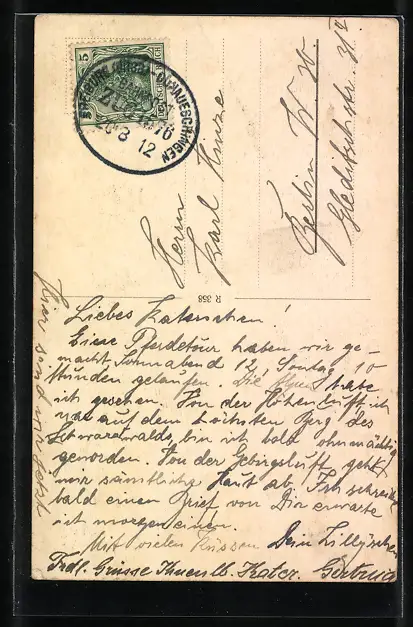 5
FREIBURG (BREISG.) - DONAUESCHINGEN
8 12
Herrn
Karl Kunze
Berlin W. 30
Gleditschstr. 3
R 358
Liebes Katerchen!
Eine Pferdetour haben wir ge-
macht, Sonnabend 12, Sonntag 10
Stunden gelaufen. Die Alpen habe
ich gesehen. Von der Höhenluft, ich
war auf dem höchsten Berg des
Schwarzwalds, bin ich bald ohnmächtig
geworden. Von der Gebirgsluft geht
mir sämtliche Haut ab. Ich schreibe
bald einen Brief, von Dir erwarte
ich morgen einen.
Mit vielen Küssen Dein
Frdl. Grüsse Ihnen lb. Kater. Gertrud
Hier sind